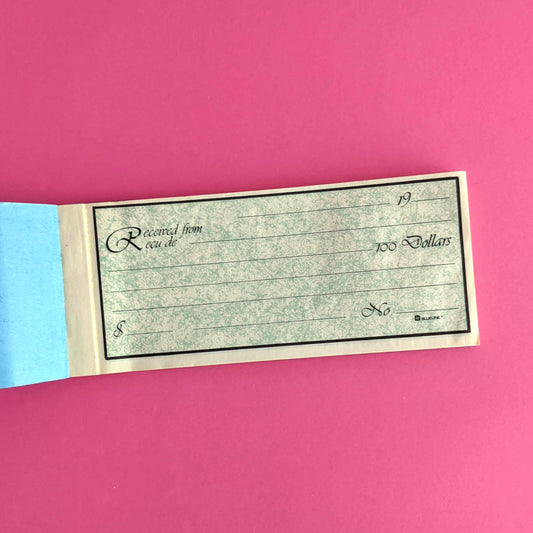 19
Received from
Recu de
100 Dollars
$
No
BLUELINE